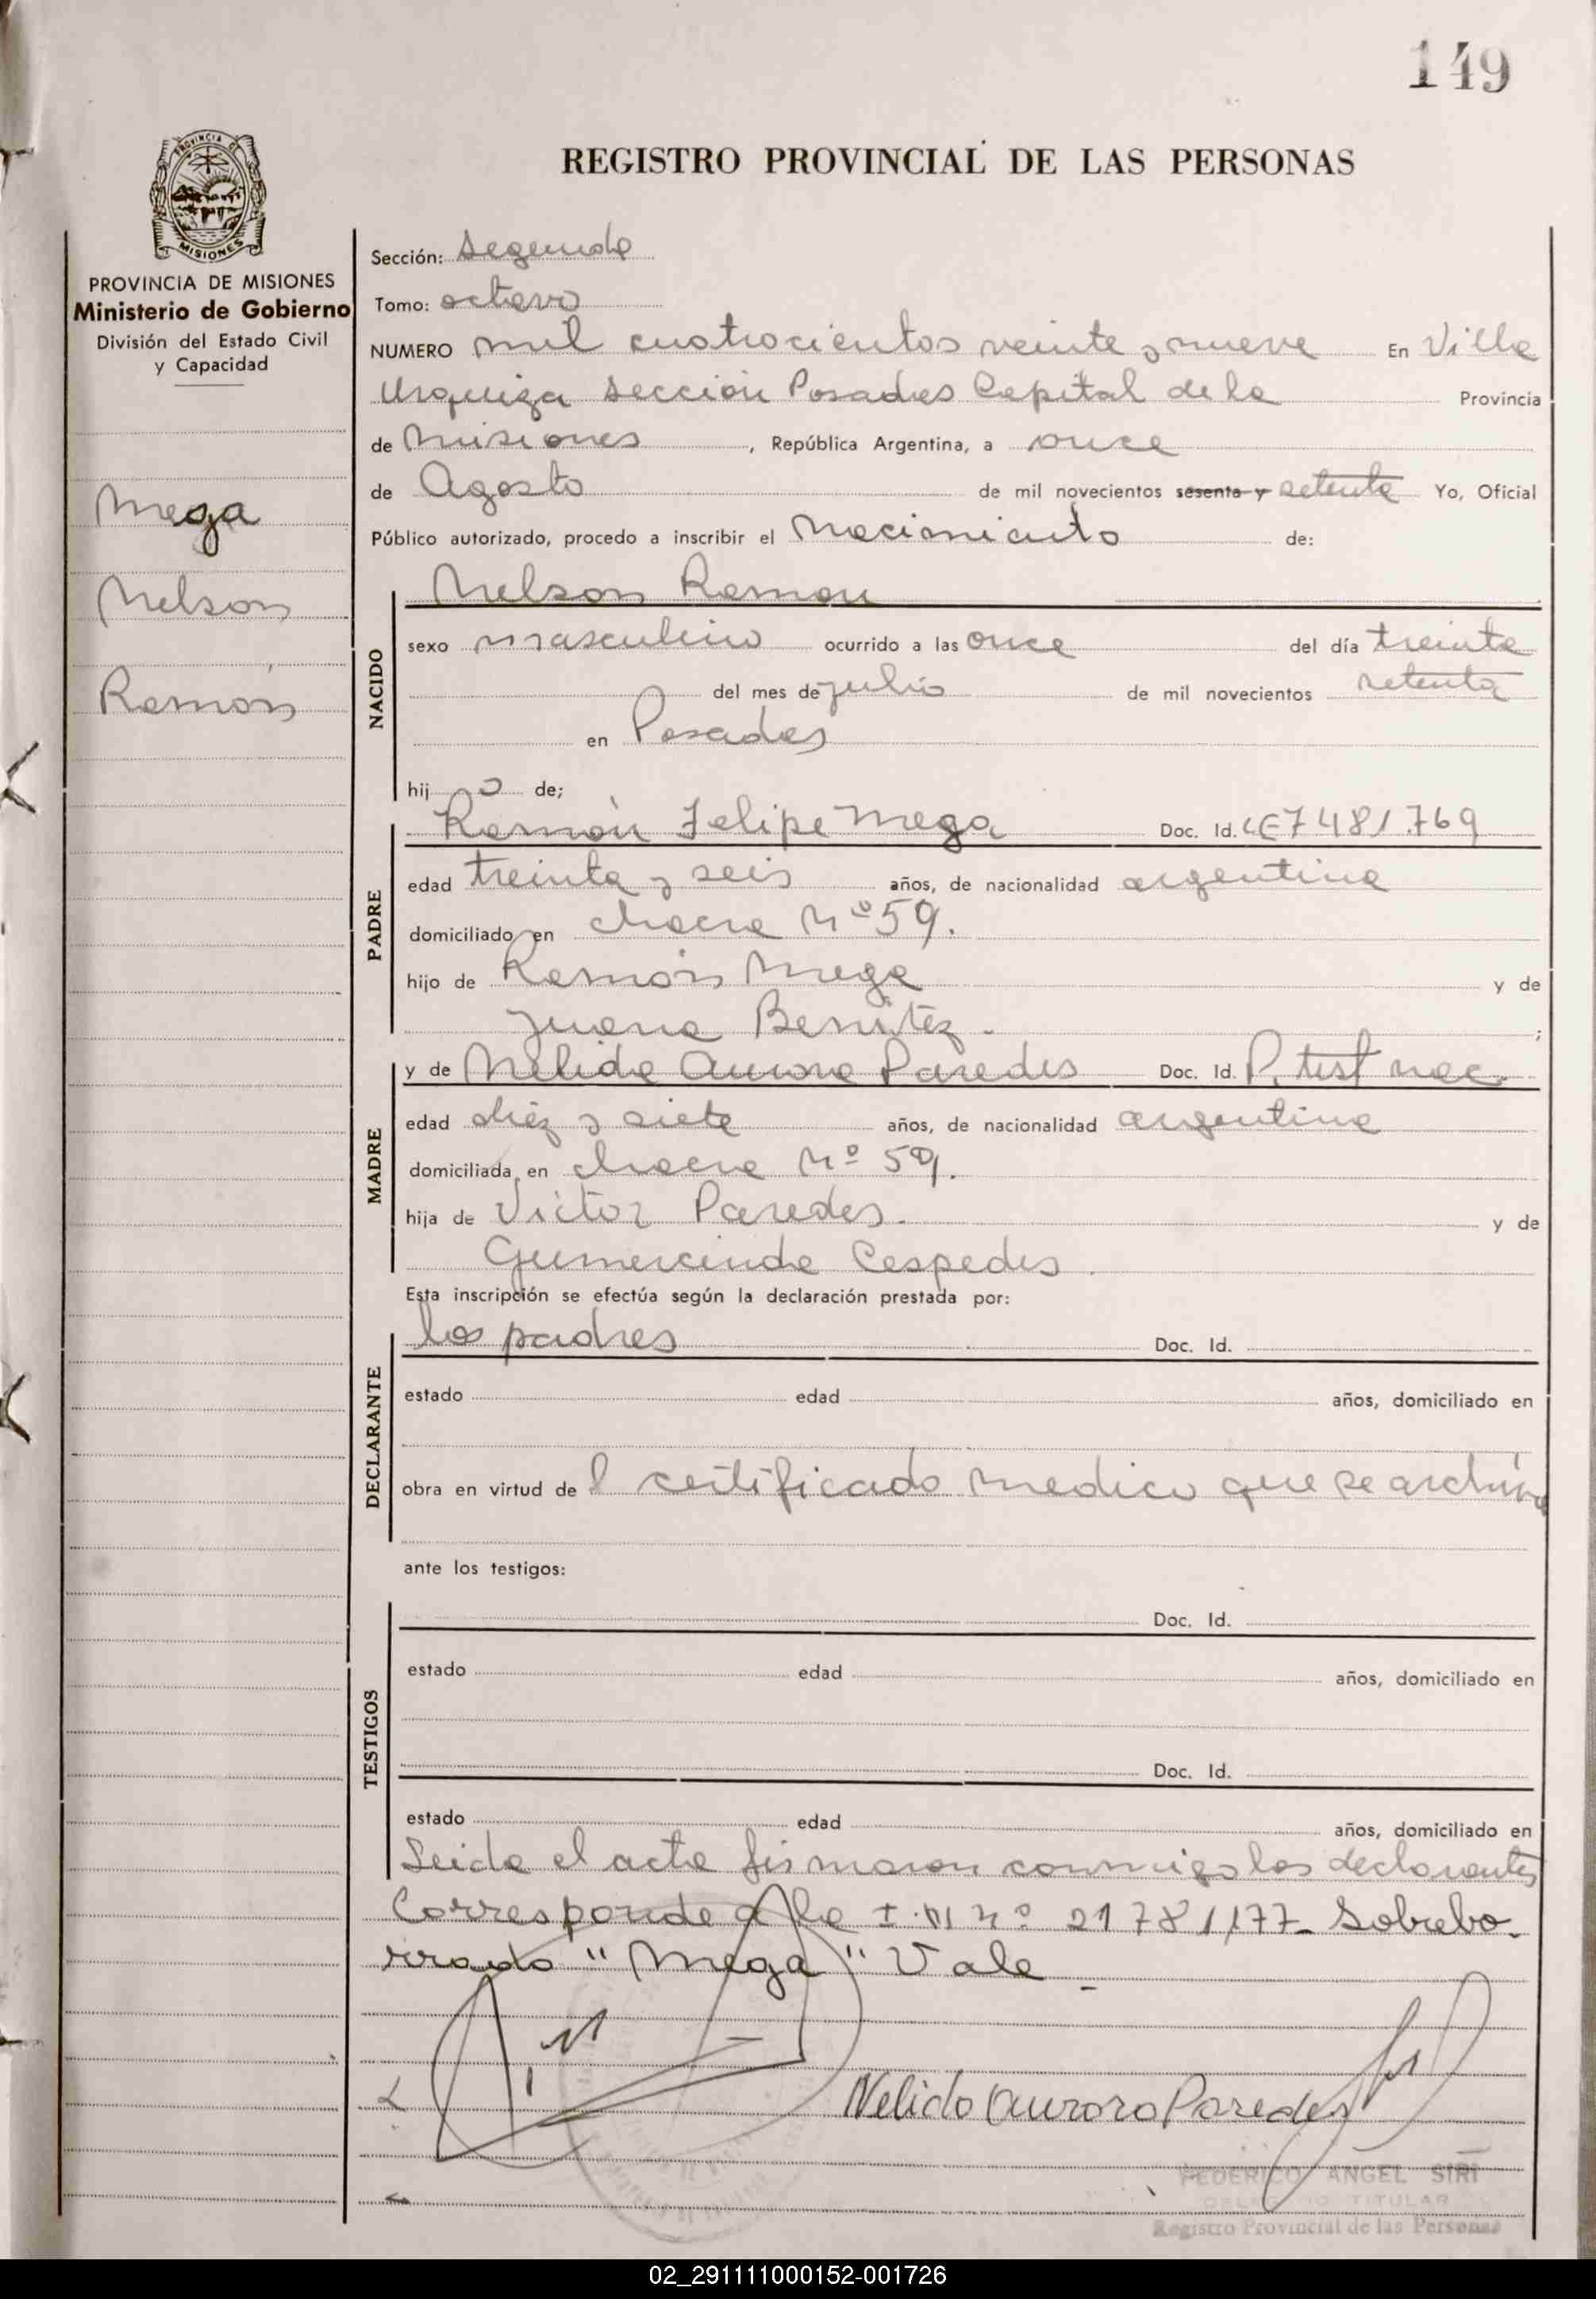 149
PROVINCIA DE
MISIONES
REGISTRO PROVINCIAL DE LAS PERSONAS
PROVINCIA DE MISIONES
Ministerio de Gobierno
División del Estado Civil
y Capacidad
Mega
Nelson
Ramón
Sección: Segunda
Tomo: octavo
NUMERO mil cuatrocientos veinte y nueve En Villa
Urquiza Sección Posadas Capital de la Provincia
de Misiones, República Argentina, a once
de Agosto de mil novecientos sesenta y setenta Yo, Oficial
Público autorizado, procedo a inscribir el Nacimiento de:
NACIDO
Nelson Ramon
sexo masculino ocurrido a las once del día treinta
del mes de julio de mil novecientos setenta
en Posadas
hijo de;
PADRE
Ramón Felipe Mega Doc. Id. LE7481.769
edad treinta y seis años, de nacionalidad argentina
domiciliado en chacra Nº 59.
hijo de Ramón Mega y de
Juana Benítez. ;
MADRE
y de Nelida Aurora Paredes Doc. Id. P. test nac.
edad diez y siete años, de nacionalidad argentina
domiciliada en chacra Nº 59.
hija de Victor Paredes. y de
Gumercinda Cespedes.
Esta inscripción se efectúa según la declaración prestada por:
DECLARANTE
los padres Doc. Id.
estado edad años, domiciliado en
obra en virtud de l certificado medico que se archiva
ante los testigos:
TESTIGOS
Doc. Id.
estado edad años, domiciliado en
Doc. Id.
estado edad años, domiciliado en
Leida el acta firmaron conmigo los declarantes
Corresponde a la I.M nº 21781,177_ Sobrebo-
rrado "Mega" Vale_
Nelida Aurora Paredes
FEDERICO ANGEL SIRI
DELEGADO TITULAR
Registro Provincial de las Personas
02_291111000152-001726